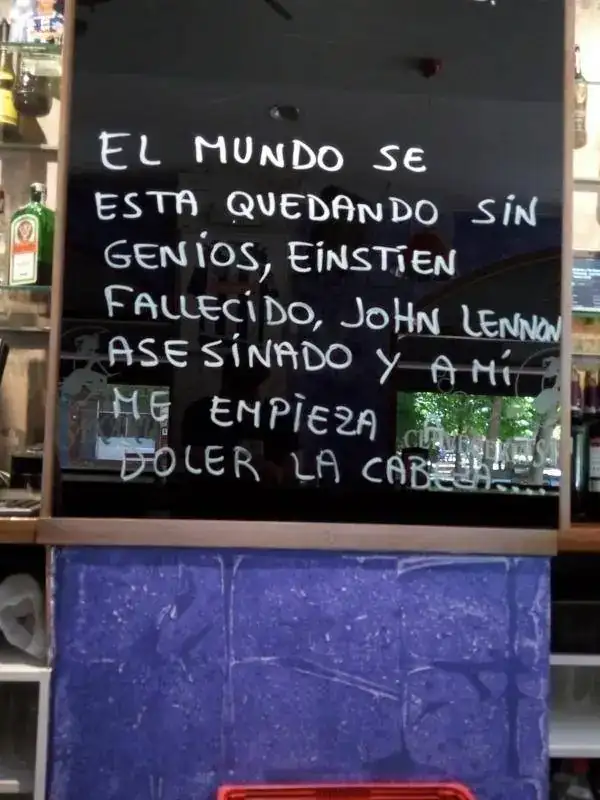 EL MUNDO SE
ESTA QUEDANDO SIN
GENIOS, EINSTIEN
FALLECIDO, JOHN LENNON
ASESINADO Y A MÍ
ME EMPIEZA A
DOLER LA CABEZA....